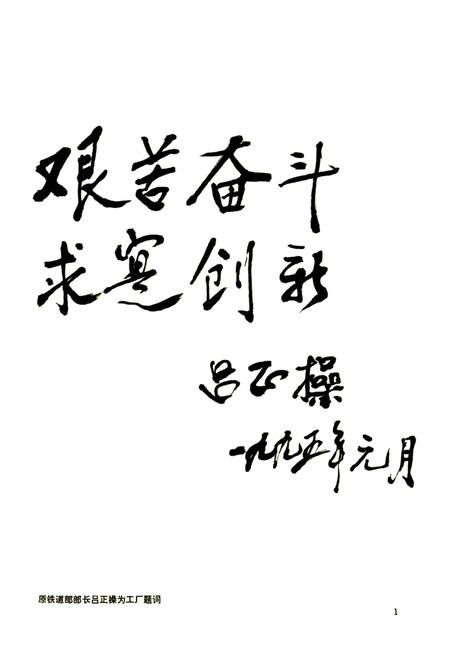 艰苦奋斗
求寔创新
吕正操
一九九五年元月
原铁道部部长吕正操为工厂题词
1